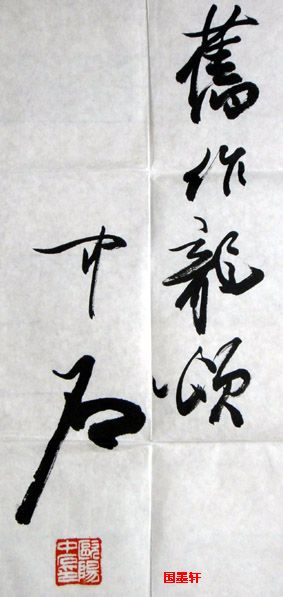 舊作龍頌
中石
歐陽中石
国墨轩